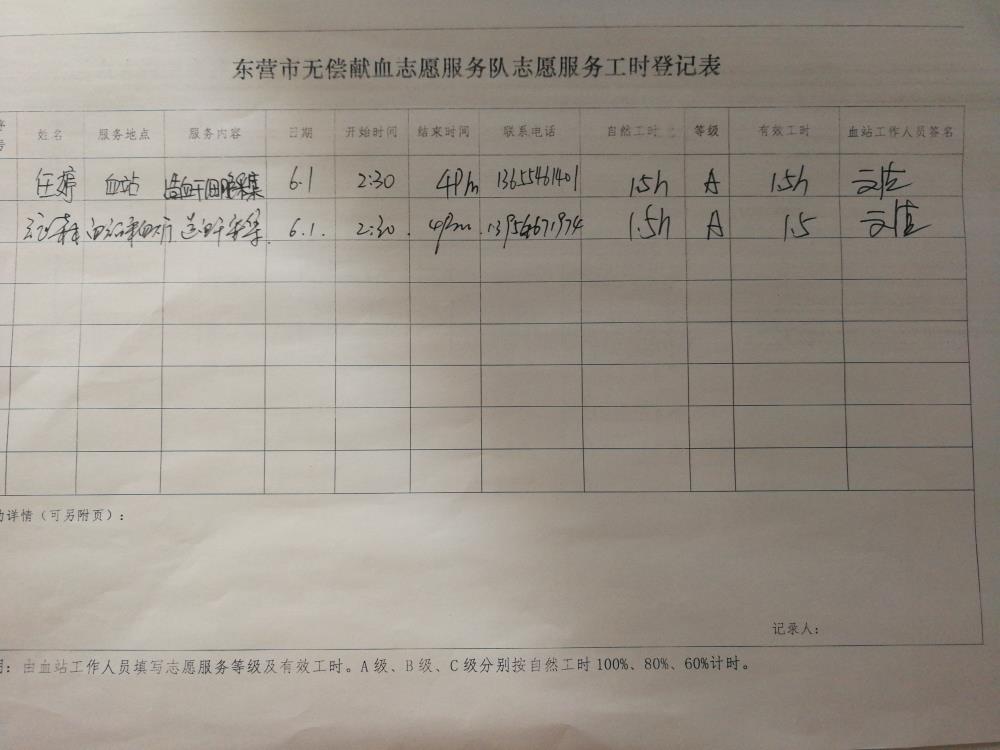 东营市无偿献血志愿服务队志愿服务工时登记表
序号 姓名 服务地点 服务内容 日期 开始时间 结束时间 联系电话 自然工时 等级 有效工时 血站工作人员签名
任婷 血站 6.1 2:30 4Pm 13655461401 1.5h A 1.5h
6.1. 2:30. 4Pm. 1.5h A 1.5
动详情（可另附页）：
记录人：
明：由血站工作人员填写志愿服务等级及有效工时。A级、B级、C级分别按自然工时100%、80%、60%计时。